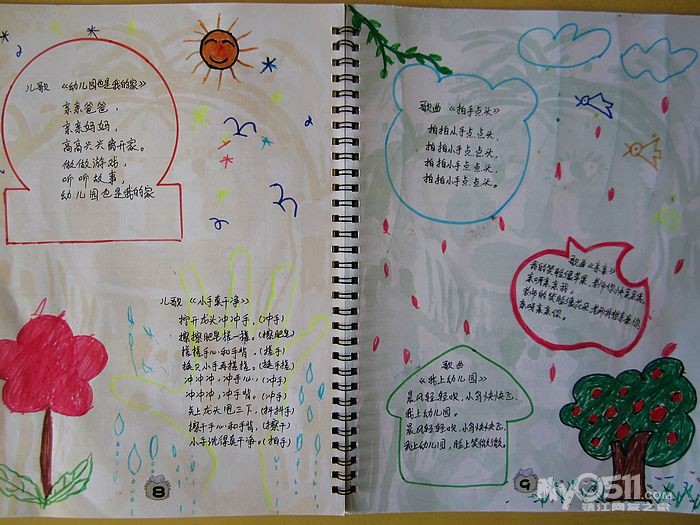 儿歌 《幼儿园也是我的家》
亲亲爸爸，
亲亲妈妈，
高高兴兴离开家。
做做游戏，
听听故事，
幼儿园也是我的家
儿歌 《小手真干净》
拧开龙头冲冲手，(冲手)
擦擦肥皂搓一搓。(擦肥皂)
搓搓手心和手背，(搓手)
换只小手再搓搓。(搓手搓)
冲冲冲，冲手心，(冲手)
冲冲冲，冲手背。(冲手)
关上龙头甩三下，(抖抖手)
擦干手心和手背，(擦干)
小手洗得真干净。(拍手)
8
歌曲 《拍手点头》
拍拍小手点点头，
拍拍小手点点头，
拍拍小手点点头，
拍拍小手点点头。
歌曲《亲亲》
我的笑脸像苹果，老师你快来亲亲，
亲呀亲亲我。
老师的笑脸像花朵，老师我想亲亲你
亲呀亲亲你。
歌曲
《我上幼儿园》
晨风轻轻吹，小鸟快快飞，
我上幼儿园。
晨风轻轻吹，小鸟快快飞，
我上幼儿园，脸上笑微微。
9
my0511.com
镇江网友之家